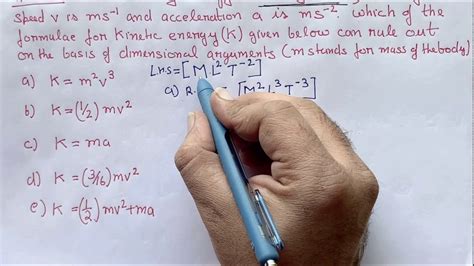 speed v is ms⁻¹ and acceleration a is ms⁻². Which of the
formulae for kinetic energy (K) given below can rule out
on the basis of dimensional arguments (m stands for mass of the body)
L.H.S = [M L² T⁻²]
a) K = m²v³
a) R. [M² L³ T⁻³]
b) K = (1/2) mv²
c) K = ma
d) K = (3/16) mv²
e) K = (1/2) mv² + ma